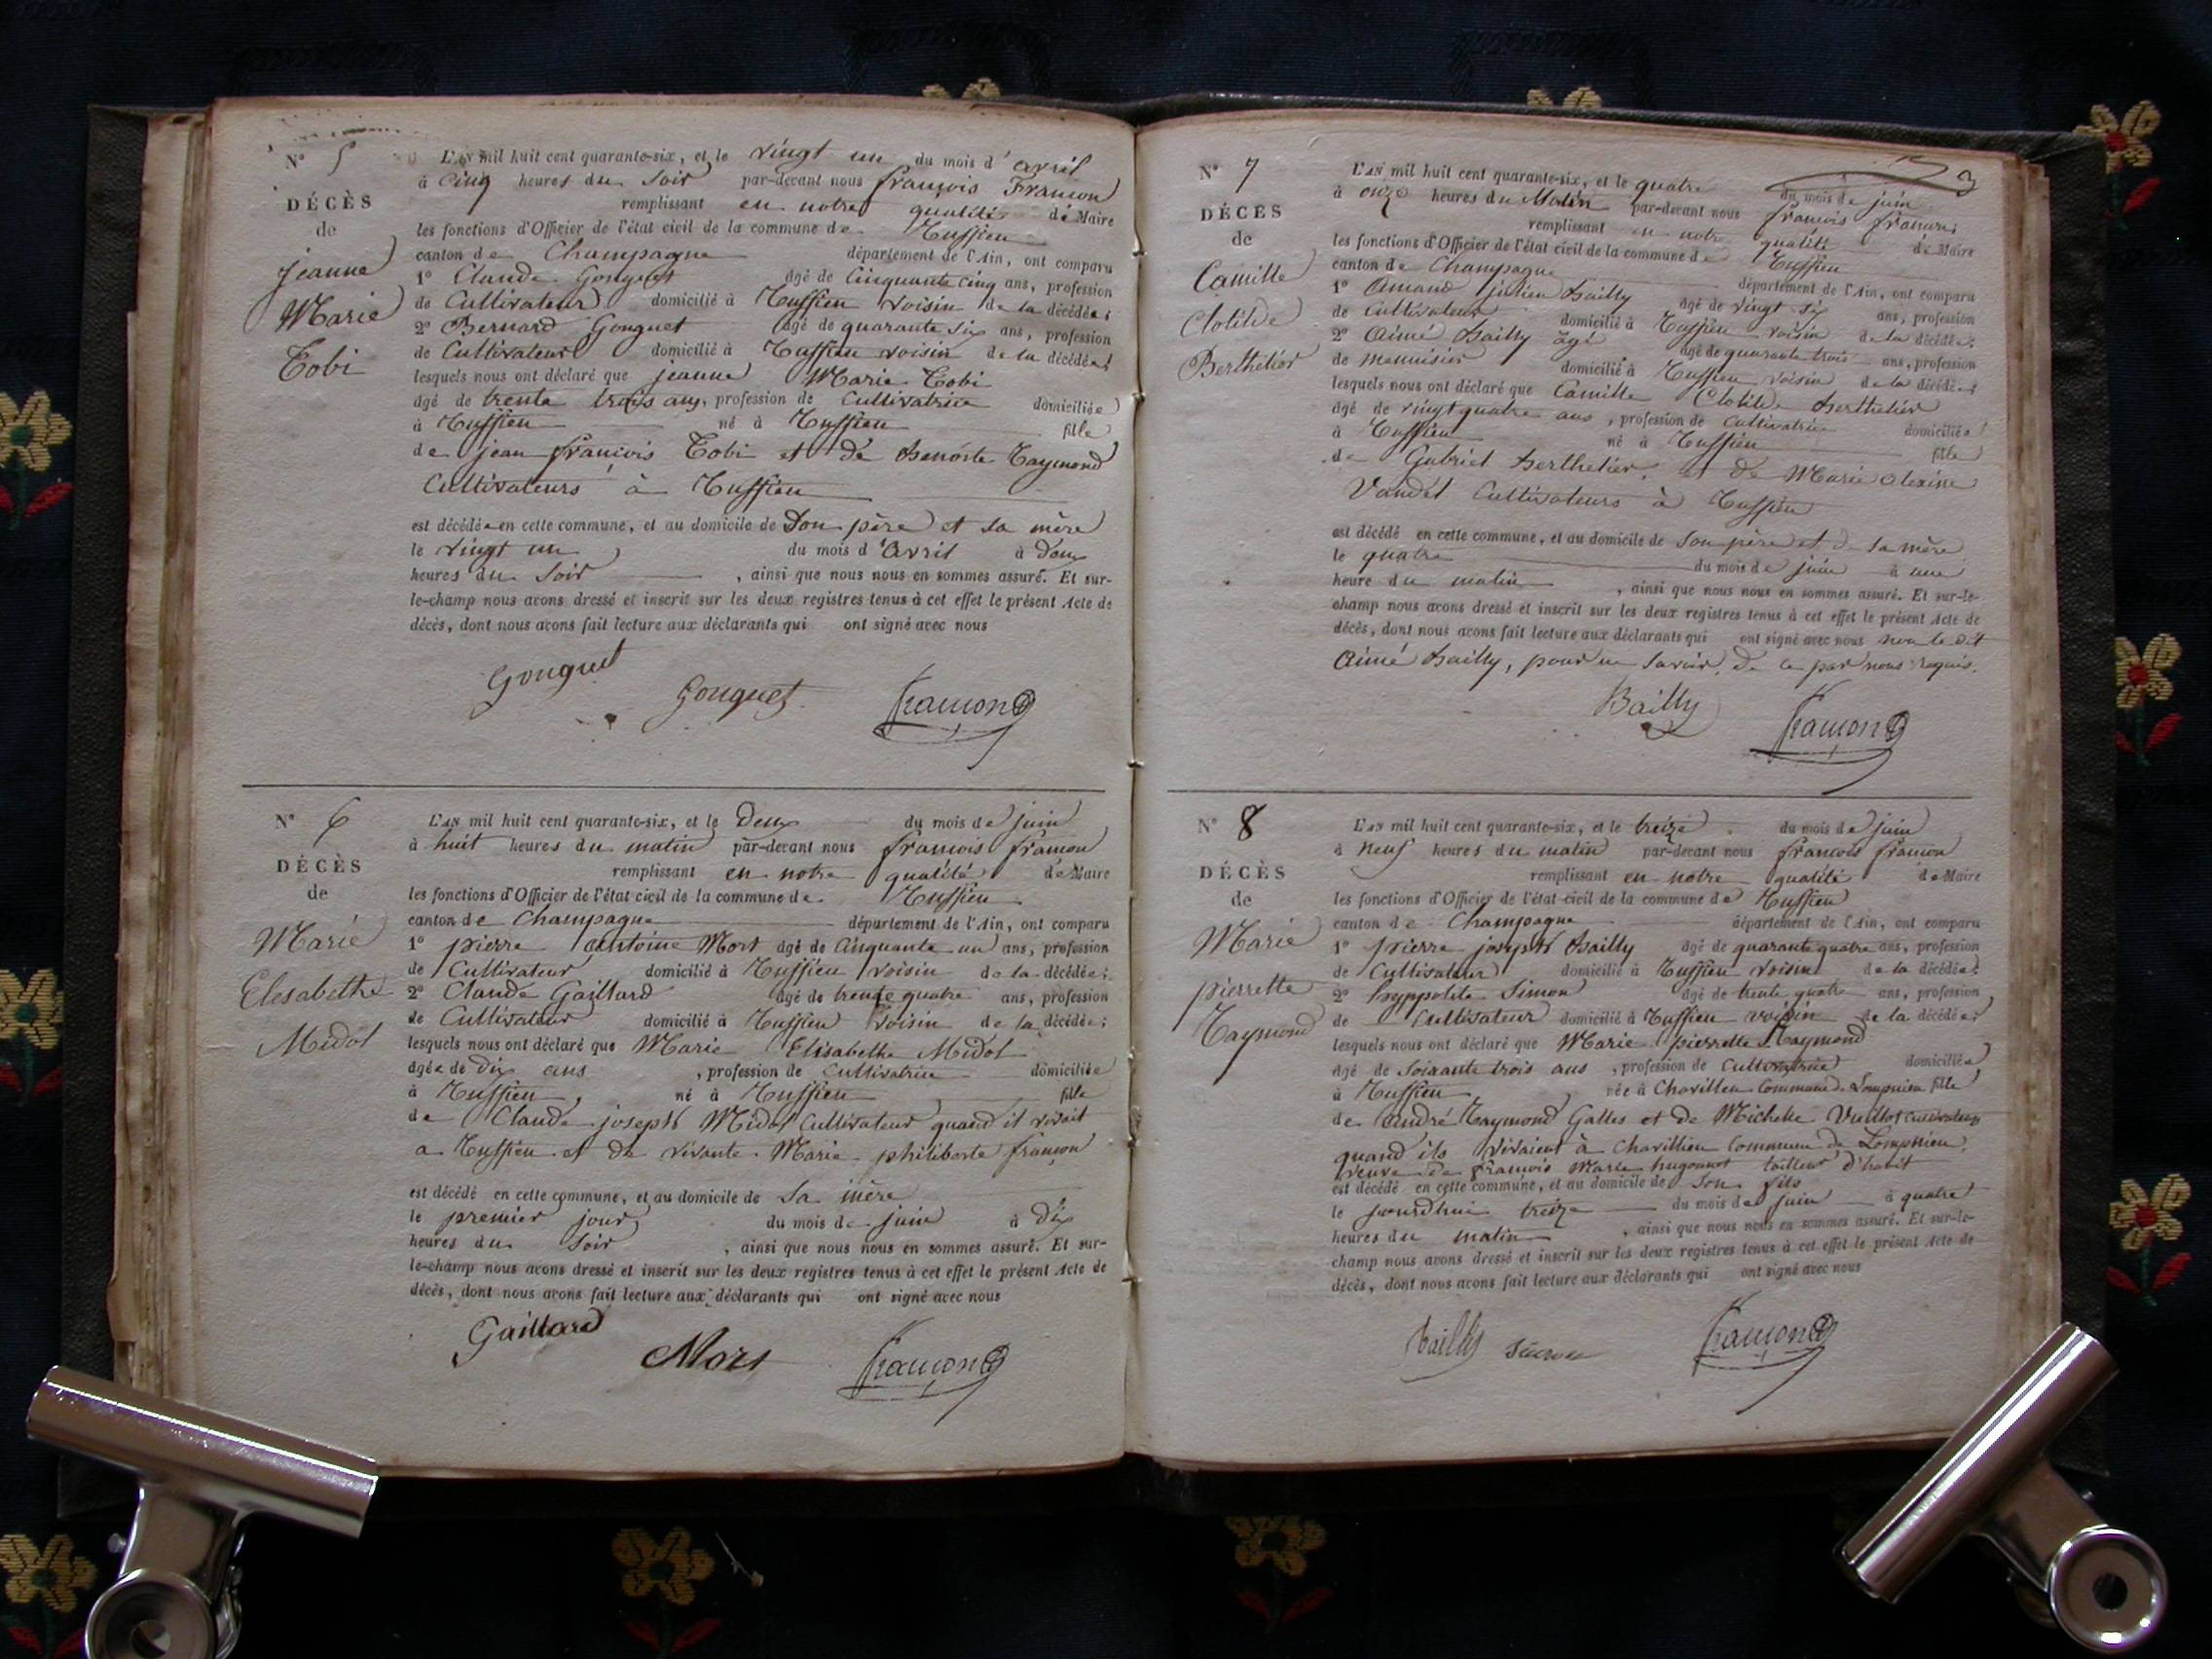 N° 5
DÉCÈS
de
jeanne
Marie
Tobi
L'AN mil huit cent quarante-six, et le vingt un du mois d'avril
à cinq heures du soir par-devant nous françois Françon
remplissant en notre qualité de Maire
les fonctions d'Officier de l'état civil de la commune de Ruffieu
canton de Champagne département de l'Ain, ont comparu
1° Claude Gonguet âgé de Cinquante cinq ans, profession
de Cultivateur domicilié à Ruffieu voisin de la décédée;
2° Bernard Gonguet âgé de quarante six ans, profession
de Cultivateur domicilié à Ruffieu voisin de la décédée;
lesquels nous ont déclaré que jeanne Marie Tobi
âgé de trente trois ans, profession de Cultivatrice domiciliée
à Ruffieu né à Ruffieu fille
de jean françois Tobi et de benoite Raymond
Cultivateurs à Ruffieu
est décédée en cette commune, et au domicile de son père et sa mère
le vingt un du mois d'avril à deux
heures du soir , ainsi que nous nous en sommes assuré. Et sur-
le-champ nous avons dressé et inscrit sur les deux registres tenus à cet effet le présent Acte de
décès, dont nous avons fait lecture aux déclarants qui ont signé avec nous
Gonguet Gonguet françon
N° 6
DÉCÈS
de
Marie
Elesabethe
Midol
L'AN mil huit cent quarante-six, et le deux du mois de juin
à huit heures du matin par-devant nous françois françon
remplissant en notre qualité de Maire
les fonctions d'Officier de l'état civil de la commune de Ruffieu
canton de Champagne département de l'Ain, ont comparu
1° pierre antoine Mort âgé de Cinquante un ans, profession
de Cultivateur domicilié à Ruffieu voisin de la décédée;
2° Claude Gaillard âgé de trente quatre ans, profession
de Cultivateur domicilié à Ruffieu voisin de la décédée;
lesquels nous ont déclaré que Marie Elisabethe Midol
âgée de dix ans , profession de Cultivatrice domiciliée
à Ruffieu, né à Ruffieu fille
de Claude joseph Midol Cultivateur quand il vivait
a Ruffieu et de vivante Marie philiberte françon
est décédé en cette commune, et au domicile de sa mère
le premier jour du mois de juin à dix
heures du soir , ainsi que nous nous en sommes assuré. Et sur-
le-champ nous avons dressé et inscrit sur les deux registres tenus à cet effet le présent Acte de
décès, dont nous avons fait lecture aux déclarants qui ont signé avec nous
Gaillard Mort françon
3
N° 7
DÉCÈS
de
Camille
Clotilde
Berthelier
L'AN mil huit cent quarante-six, et le quatre du mois de juin
à onze heures du Matin par-devant nous françois françon
remplissant en notre qualité de Maire
les fonctions d'Officier de l'état civil de la commune de Ruffieu
canton de Champagne département de l'Ain, ont comparu
1° Amand julien bailly âgé de vingt six ans, profession
de Cultivateur domicilié à Ruffieu voisin de la décédée;
2° Aimé bailly âgé âgé de quarante trois ans, profession
de menuisier domicilié à Ruffieu voisin de la décédée;
lesquels nous ont déclaré que Camille Clotilde berthelier
âgé de vingt quatre ans , profession de Cultivatrice domiciliée
à Ruffieu né à Ruffieu fille
de Gabriel berthelier et de Marie
Cultivateurs à Ruffieu
est décédé en cette commune, et au domicile de son père et de sa mère
le quatre du mois de juin à une
heure du matin , ainsi que nous nous en sommes assuré. Et sur-le-
champ nous avons dressé et inscrit sur les deux registres tenus à cet effet le présent Acte de
décès, dont nous avons fait lecture aux déclarants qui ont signé avec nous non le dit
Aimé bailly, pour ne savoir, de ce par nous requis.
Bailly françon
N° 8
DÉCÈS
de
Marie
pierrette
Raymond
L'AN mil huit cent quarante-six, et le treize du mois de juin
à neuf heures du matin par-devant nous françois françon
remplissant en notre qualité de Maire
les fonctions d'Officier de l'état civil de la commune de Ruffieu
canton de Champagne département de l'Ain, ont comparu
1° pierre joseph bailly âgé de quarante quatre ans, profession
de Cultivateur domicilié à Ruffieu voisin de la décédée;
2° hyppolite Simon âgé de trente quatre ans, profession
de Cultivateur domicilié à Ruffieu voisin de la décédée;
lesquels nous ont déclaré que Marie pierrette Raymond
âgé de Soixante trois ans , profession de Cultivatrice domiciliée
à Ruffieu née à Commune de Lompnieu fille
de andré Raymond Galles et de Michelle Cultivateurs
quand ils vivaient à Commune de Lompnieu,
veuve de françois Marie hugonnet tailleur d'habit
est décédé en cette commune, et au domicile de son fils
le jourdhui treize du mois de juin à quatre
heures du matin , ainsi que nous nous en sommes assuré. Et sur-le-
champ nous avons dressé et inscrit sur les deux registres tenus à cet effet le présent Acte de
décès, dont nous avons fait lecture aux déclarants qui ont signé avec nous
Bailly Simon françon